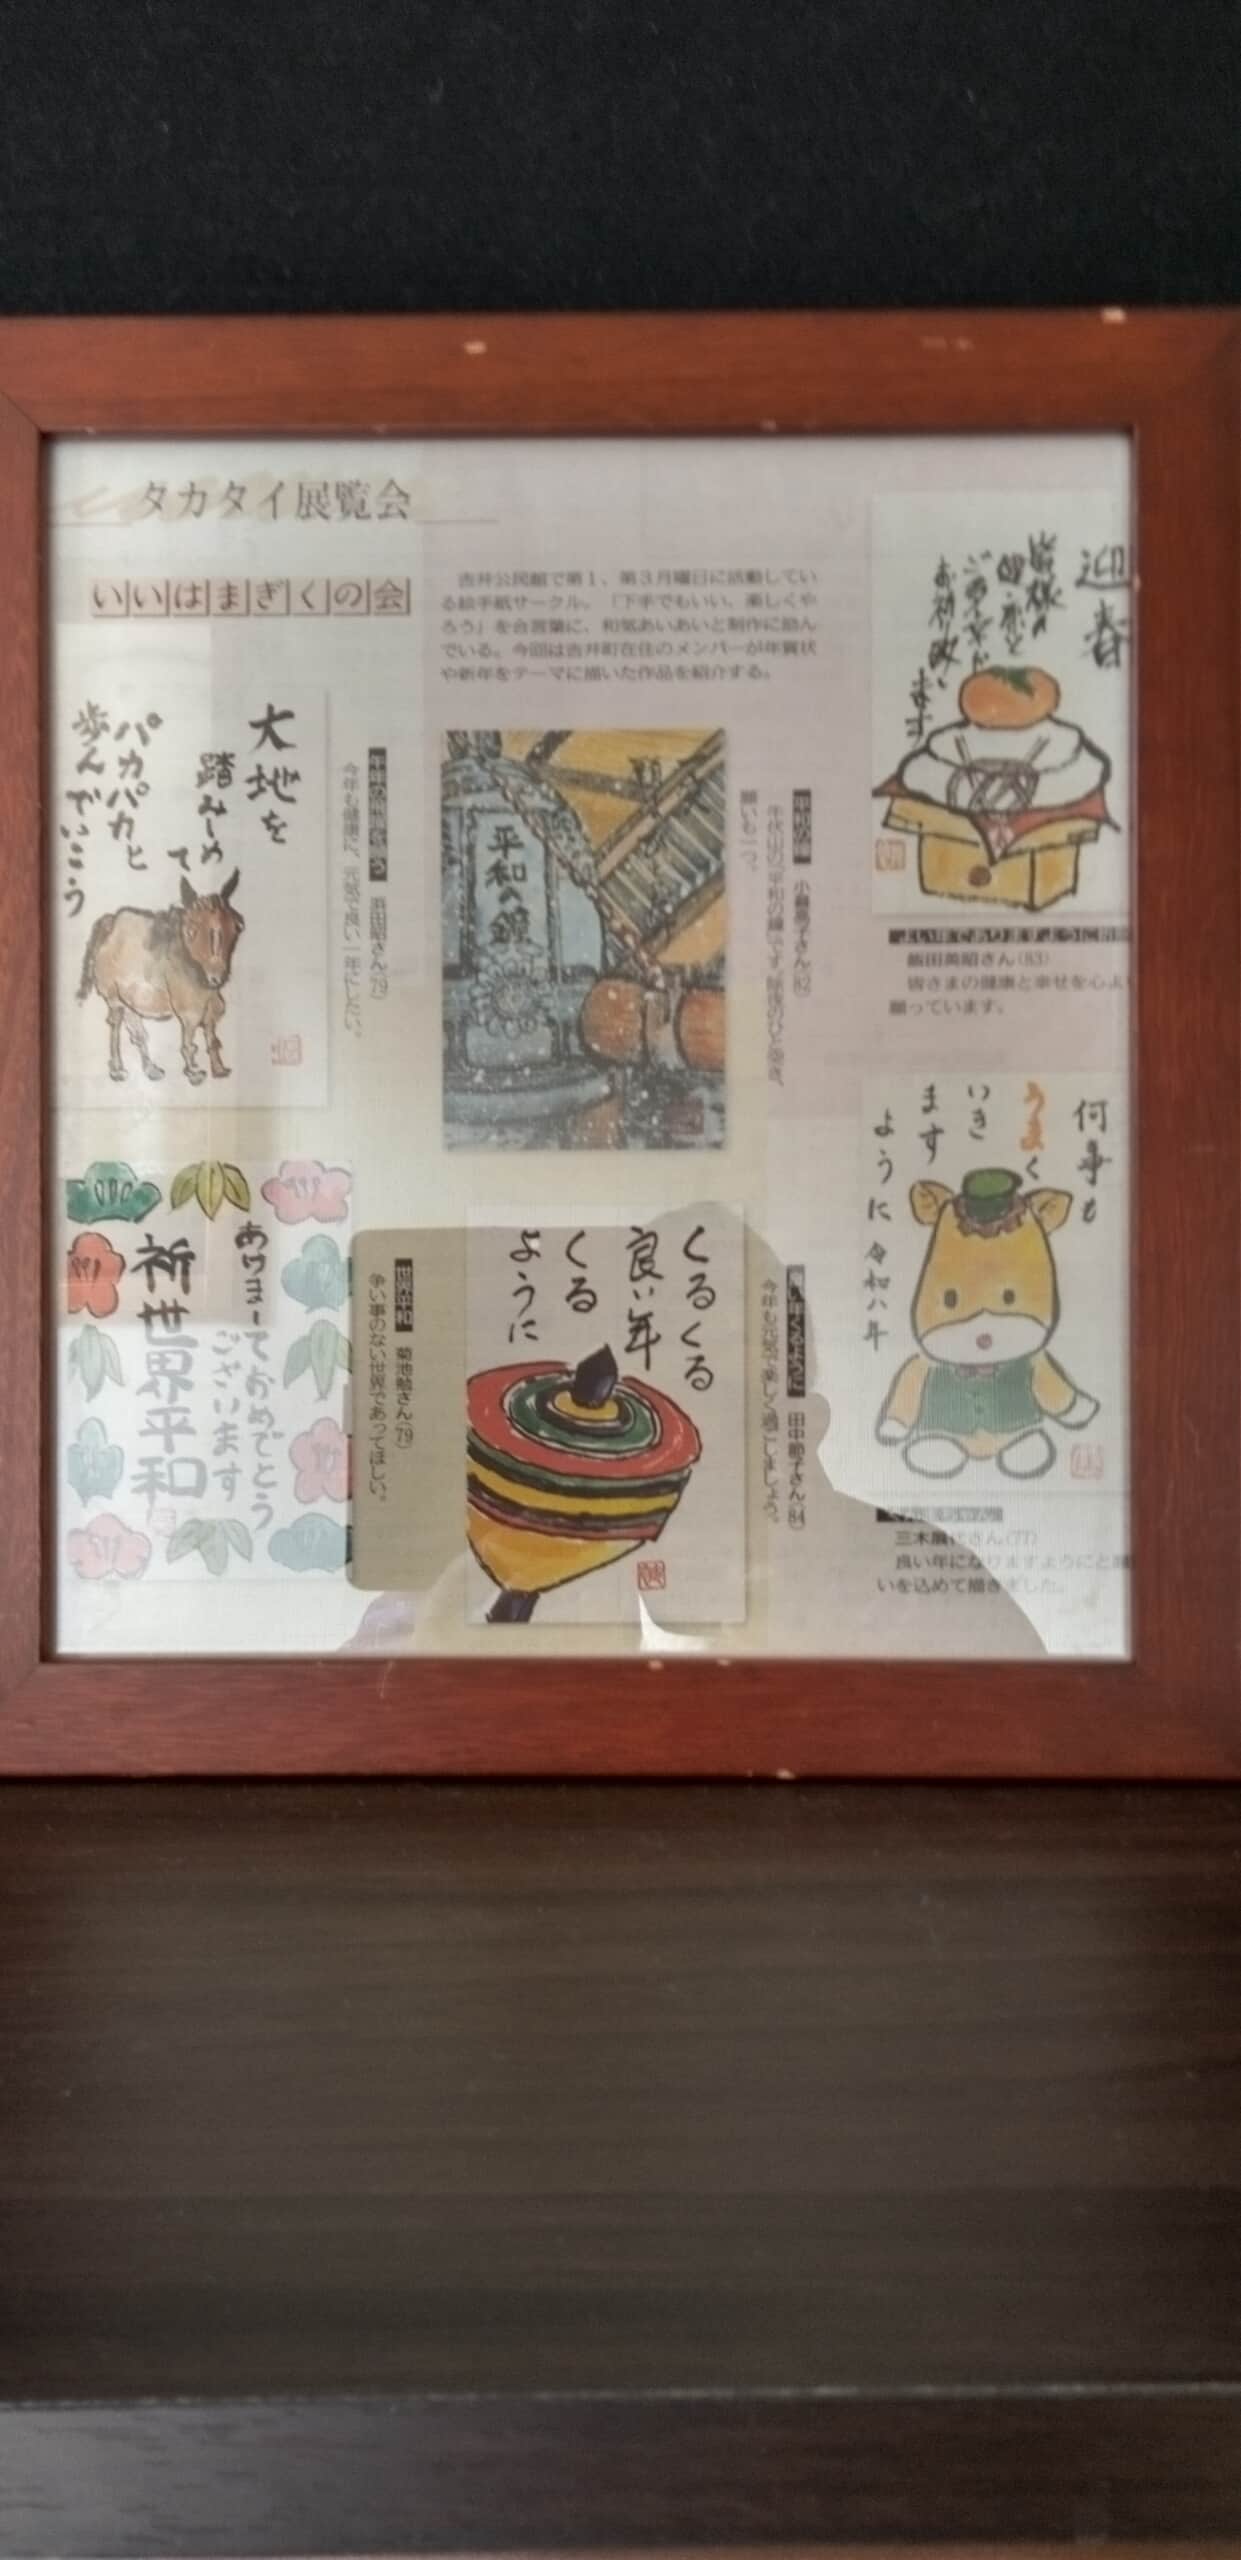 タカタイ展覧会
いいはまぎくの会
吉井公民館で第1、第3月曜日に活動してい
る絵手紙サークル。「下手でもいい、楽しくや
ろう」を合言葉に、和気あいあいと制作に励ん
でいる。今回は吉井町在住のメンバーが年賀状
や新年をテーマに描いた作品を紹介する。
迎春
皆様の
健康と
ご多幸を
お祈り致し
ます
飯田英昭さん(83)
皆さまの健康と幸せを心より
願っています。
平和の鐘
平和の鐘 小倉恵子さん(82)
牛伏山の「平和の鐘」です。除夜のひと突き、
願いも一つ。
大地を
踏みしめ
て
パカパカと
歩んでいこう
浜田昭さん(79)
今年も健康に、元気で良い一年にしたい。
何事も
うまく
いき
ます
ように
令和八年
三木展代さん(77)
良い年になりますようにと願
いを込めて描きました。
くるくる
良い年
くる
ように
良い年くるように 田中節子さん(84)
今年も元気で楽しく過ごしましょう。
あけましておめでとう
ございます
祈世界平和
世界平和 菊池勉さん(79)
争い事のない世界であってほしい。